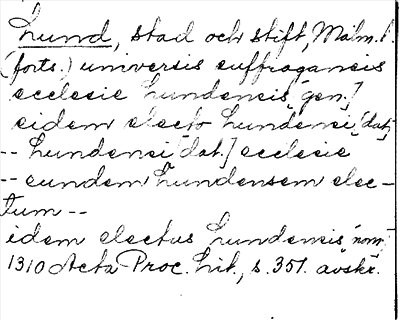 Lund, stad och stift, Malm. l.
(forts.) universis suffraganeis
ecclesie Lundensis [gen.]
eidem electo Lundensi [dat.]
-- Lundensi [dat.] ecclesie
-- eundem Lundensem elec-
tum --
idem electus Lundensis [nom.]
1310 Acta Proc. Lit., s. 351. avskr.